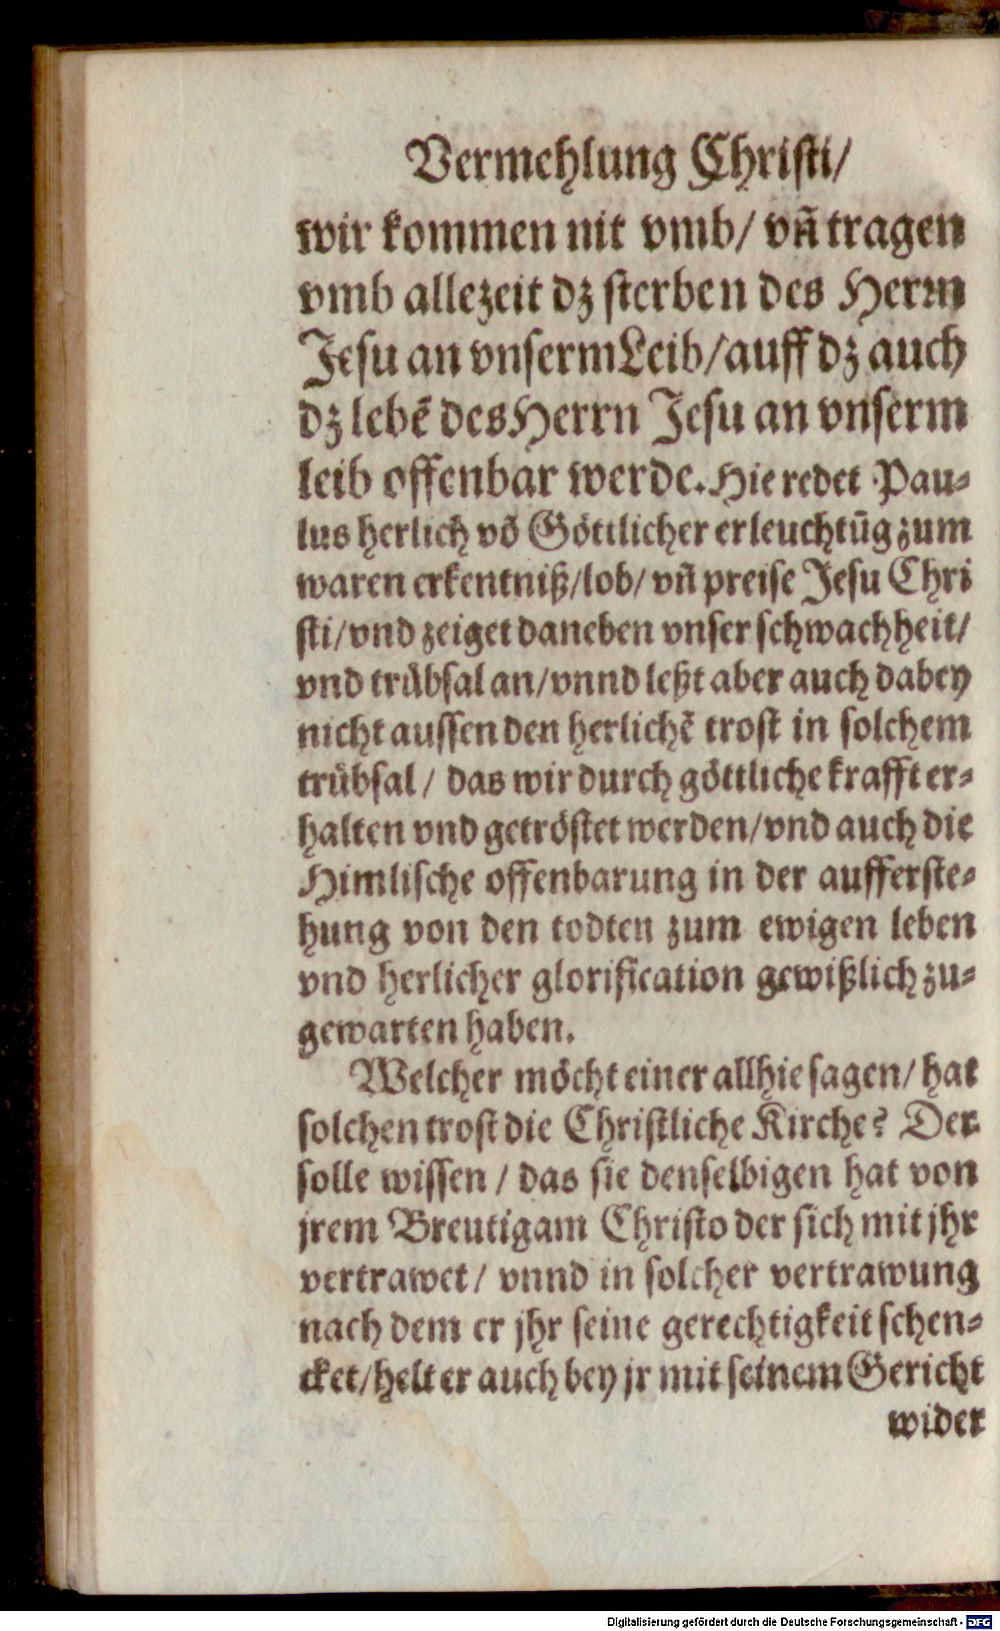 Vermehlung Christi/
wir kommen nit vmb/ vñ tragen
vmb allezeit dz sterben des Herrn
Jesu an vnserm Leib/auff dz auch
dz lebẽ des Herrn Jesu an vnserm
leib offenbar werde. Hie redet Pau-
lus herlich võ Göttlicher erleuchtũg zum
waren erkentniß/lob/ vñ preise Jesu Chri
sti/vnd zeiget daneben vnser schwachheit/
vnd trübsal an/vnnd leßt aber auch dabey
nicht aussen den herlichẽ trost in solchem
trübsal / das wir durch göttliche krafft er-
halten vnd getröstet werden/vnd auch die
Himlische offenbarung in der aufferste-
hung von den todten zum ewigen leben
vnd herlicher glorification gewißlich zu-
gewarten haben.
Welcher möcht einer allhie sagen/ hat
solchen trost die Christliche Kirche? Der
solle wissen / das sie denselbigen hat von
jrem Breutigam Christo der sich mit jhr
vertrawet/ vnnd in solcher vertrawung
nach dem er jhr seine gerechtigkeit schen-
cket/helt er auch bey jr mit seinem Gericht
wider
Digitalisierung gefördert durch die Deutsche Forschungsgemeinschaft - DFG